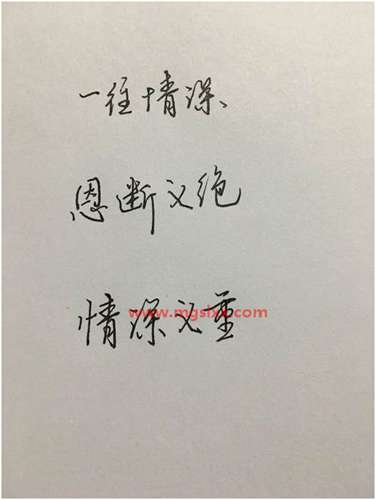 一往情深、
恩断义绝
www.mgslxx.com
情深义重